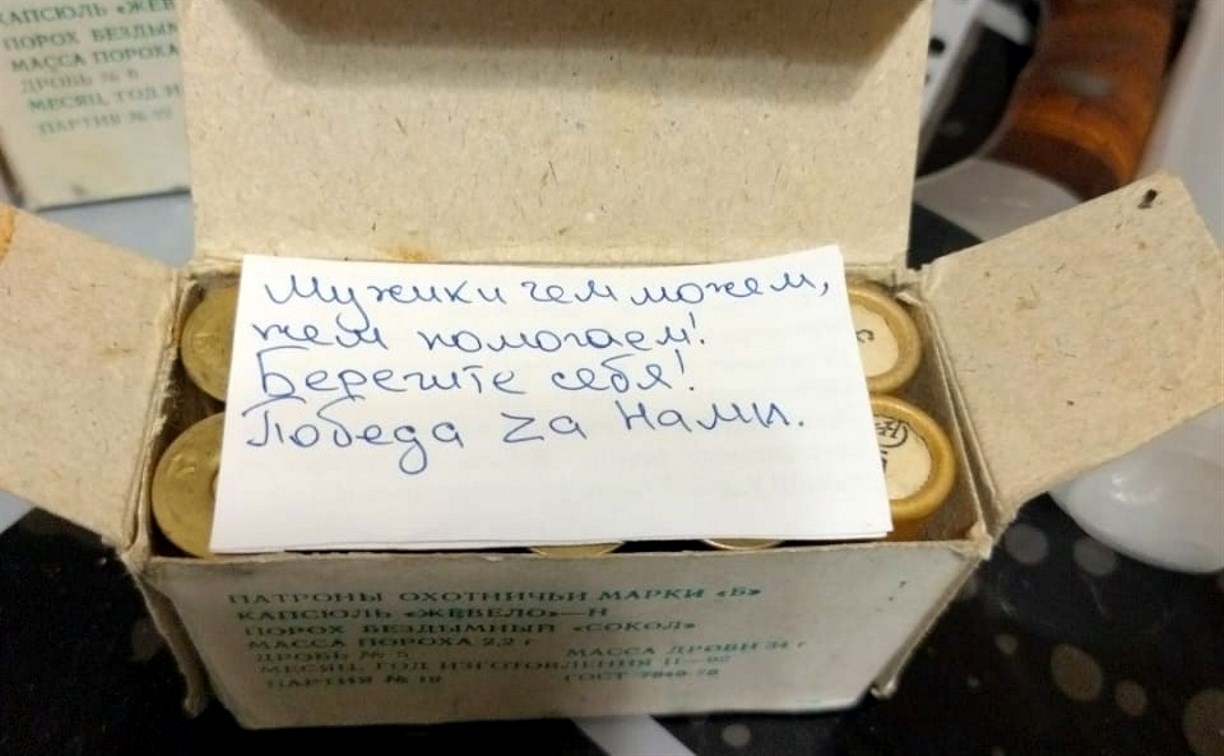 КАПСЮЛЬ «ЖЕВ
ПОРОХ БЕЗДЫМ
МАССА ПОРОХА
ДРОБЬ №
МЕСЯЦ, ГОД И
ПАРТИЯ №
Мужики чем можем,
тем помогаем!
Берегите себя!
Победа Zа нами.
ПАТРОНЫ ОХОТНИЧЬИ МАРКИ «Б»
КАПСЮЛЬ «ЖЕВЕЛО»—Н
ПОРОХ БЕЗДЫМНЫЙ «СОКОЛ»
МАССА ПОРОХА 2,2 г
ДРОБЬ № 5 МАССА ДРОБИ 34 г
МЕСЯЦ, ГОД ИЗГОТОВЛЕНИЯ 11—92
ПАРТИЯ № 19 ГОСТ 7840-78